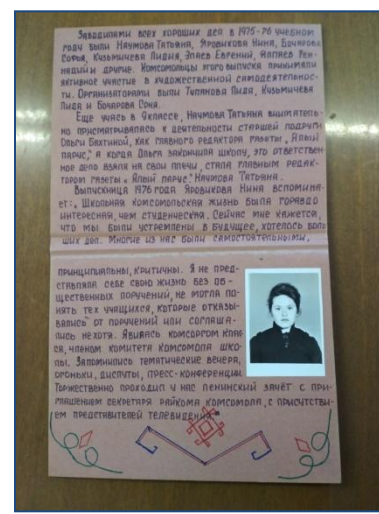 Заводилами всех хороших дел в 1975-76 учебном
году были Наумова Татьяна, Яровикова Нина, Бочарова
Софья, Кузьмичева Лидия, Элаев Евгений, Яппаев Ген-
надий и другие. Комсомольцы этого выпуска принимали
активное участие в художественной самодеятельнос-
ти. Организаторами были Тупанова Лида, Кузьмичева
Лида и Бочарова Соня.
Еще учась в 9классе, Наумова Татьяна вниматель-
но присматривалась к деятельности старшей подруги
Ольги Бахтиной, как главного редактора газеты „Алый
парус", а когда Ольга закончила школу, это ответствен-
ное дело взяла на свои плечи, стала главным редак-
тором газеты „Алый парус" Наумова Татьяна.
Выпускница 1976 года Яровикова Нина вспомина-
ет: „Школьная комсомольская жизнь была гораздо
интересная, чем студенческая. Сейчас мне кажется,
что мы были устремлены в будущее, хотелось боль-
ших дел. Многие из нас были самостоятельными,
принципиальны, критичны. Я не пред-
ставляла себе свою жизнь без об-
щественных поручений, не могла по-
нять тех учащихся, которые отказы-
вались от поручений или соглаша-
лись нехотя. Являясь комсоргом клас
са, членом комитета комсомола шко-
лы. Запомнились тематические вечера,
огоньки, диспуты, пресс-конференции.
Торжественно проходил у нас ленинский зачёт с при-
глашением секретаря райкома комсомола, с присутстви-
ем представителей телевидения"